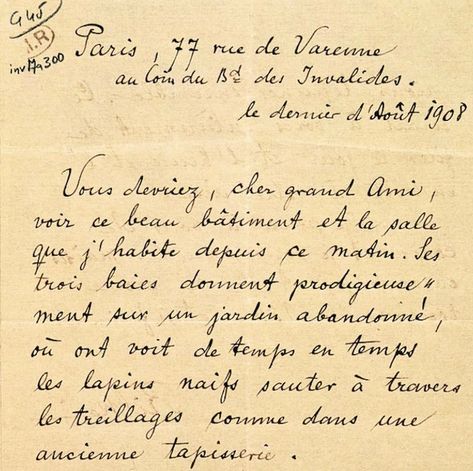 G45
I.R
inv Ma300
Paris, 77 rue de Varenne
au Coin du Bd des Invalides.
le dernier d'Août 1908
Vous devriez, cher grand Ami,
voir ce beau bâtiment et la salle
que j'habite depuis ce matin. Ses
trois baies donnent prodigieuse"
ment sur un jardin abandonné,
où ont voit de temps en temps
les lapins naifs sauter à travers
les treillages comme dans une
ancienne tapisserie.